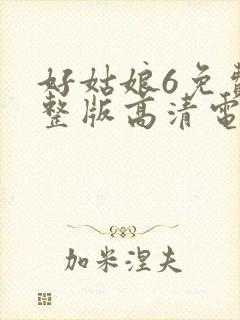 好姑娘6免費
整版高清電
加米涅夫